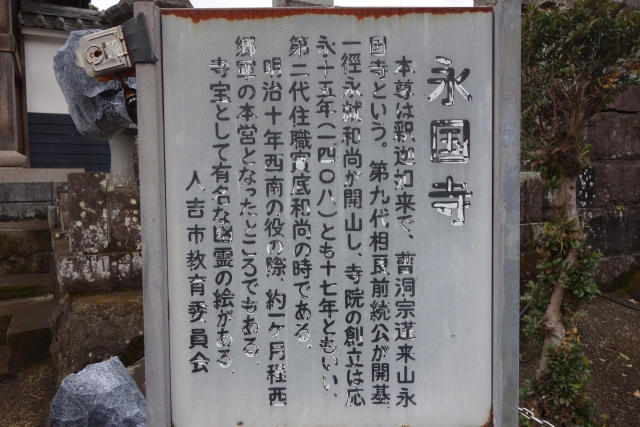 永国寺
本尊は釈迦如来で、曹洞宗蓬来山永
国寺という。第九代相良前続公が開基
一徑永就和尚が開山し、寺院の創立は応
永十五年(一四〇八)とも十七年ともいい、
第二代住職實底和尚の時である。
明治十年西南の役の際、約一ケ月程西
郷軍の本営となったところでもある。
寺宝として有名な幽霊の絵がある。
人吉市教育委員会